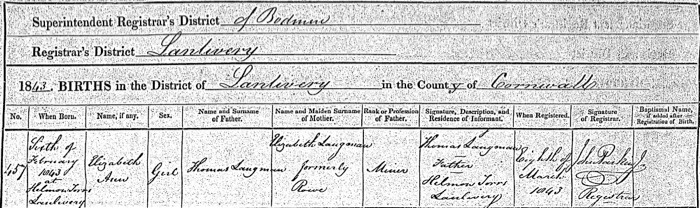 Superintendent Registrar's District of Bodmin
Registrar's District Lanlivery
1843. BIRTHS in the District of Lanlivery in the County of Cornwall
No. When Born. Name, if any. Sex. Name and Surname of Father. Name and Maiden Surname of Mother. Rank or Profession of Father. Signature, Description, and Residence of Informant. When Registered. Signature of Registrar. Baptismal Name, if added after Registration of Birth.
457 Sixth of February 1843 at Helmon Torrs Lanlivery Elizabeth Ann Girl Thomas Langman Elizabeth Langman formerly Rowe Miner Thomas Langman Father Helmon Torrs Lanlivery Eighth of March 1843 John Registrar